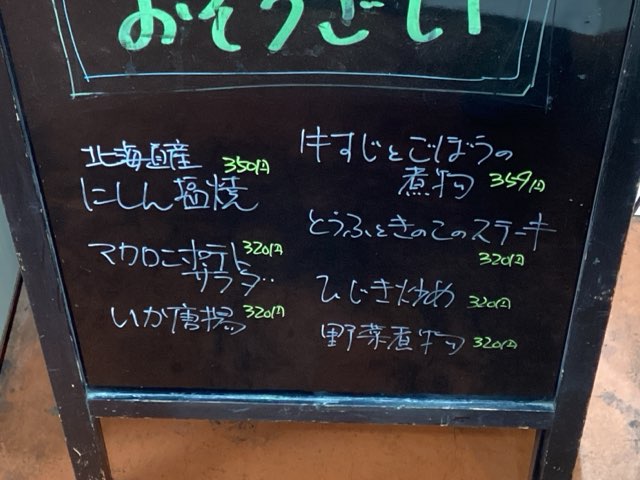 おそうざい
北海道産
にしん塩焼 350円
マカロニポテト 320円
サラダ
いか唐揚 320円
牛すじとごぼうの
煮物 359円
とうふときのこのステーキ
320円
ひじき炒め 320円
野菜煮物 320円